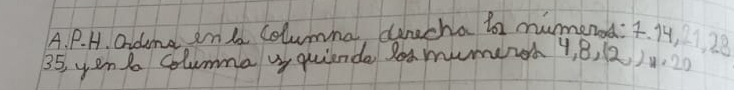 A.P.H. Ordena en la columna derecha los números: 7.14, 21, 28
35, y en la columna izquierda los numeros 4,8,12, 20